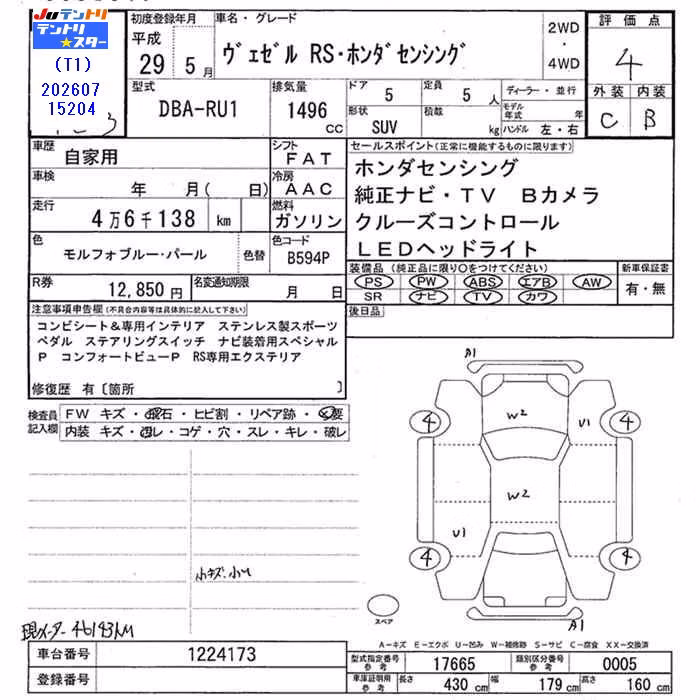 Juテントリ
テントリ★スター
(T1)
202607
15204
初度登録年月
平成
29 5月
車名・グレード
ヴェゼル RS・ホンダセンシング
2WD
・
4WD
評価点
4
外装 内装
C B
型式
DBA-RU1
排気量
1496
CC
ドア
5
定員
5 人
形状
SUV
積載
kg
ディーラー・並行
モデル年式 年
ハンドル 左・右
車歴
自家用
シフト
FAT
車検
年 月( 日)
冷房
AAC
走行
4万6千138 km
燃料
ガソリン
色
モルフォブルー・パール
色替
色コード
B594P
R券
12,850円
名変通知期限
月 日
セールスポイント(正常に機能するものに限ります)
ホンダセンシング
純正ナビ・TV Bカメラ
クルーズコントロール
LEDヘッドライト
装備品 (純正品に限り○をつけてください)
PS PW ABS エアB AW
SR ナビ TV カワ
新車保証書
有・無
後日品
注意事項申告欄(不具合内容等は具体的に記入して下さい)
コンビシート&専用インテリア ステンレス製スポーツ
ペダル ステアリングスイッチ ナビ装着用スペシャル
P コンフォートビューP RS専用エクステリア
修復歴 有〔箇所 〕
検査員記入欄
FW キズ・飛石・ヒビ割・リペア跡・交要
内装 キズ・汚レ・コゲ・穴・スレ・キレ・破レ
小キズ・小U
現メーター46143KM
A1
W2
U1
4
4
W2
U1
4
4
A1
スペア
A-キズ E-エクボ U-凹み W-補修跡 S-サビ C-腐食 XX-交換済
車台番号
1224173
登録番号
型式指定番号 参考
17665
類別区分番号 参考
0005
車庫証明用 参考
長さ 430 cm
幅 179 cm
高さ 160 cm